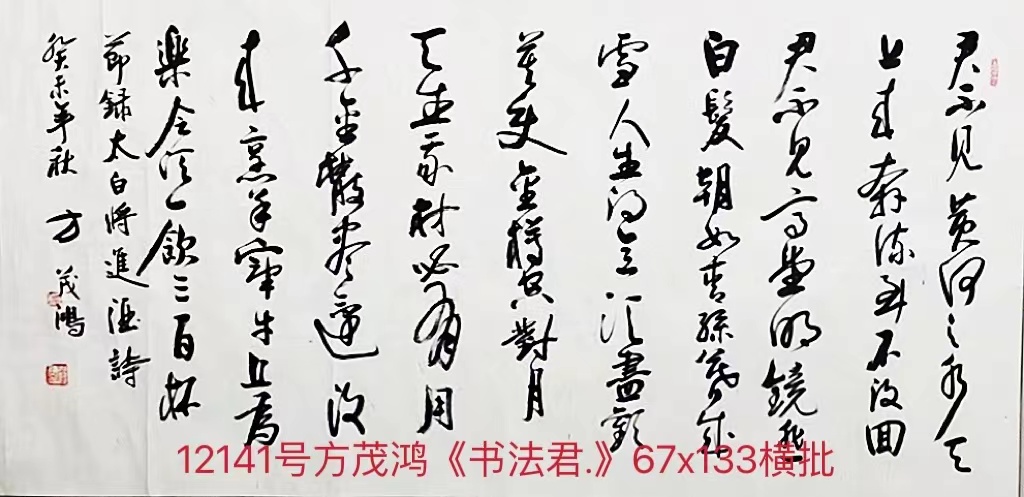 君不見黄河之水天
上来奔流到不復回
君不見高堂明鏡悲
白髮朝如青絲暮成
雪人生得意須盡歡
莫使金樽空對月
天生我材必有用
千金散盡還復
来烹羊宰牛且為
樂會須一飲三百杯
節録太白將進酒詩
癸未年秋 方茂鴻
12141号方茂鸿《书法君.》67x133横批